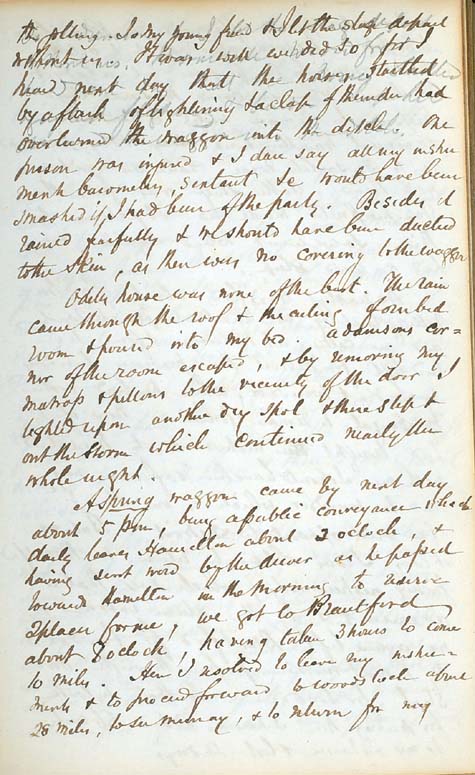 the jolting. So my young friend & I let the stage depart
without us. It was well we did so for I
heard next day that the horses startled
by a flash of lightening & a clap of thunder had
overturned the waggon into the ditch. One
person was injured & I dare say all my instru
ments barometer, sextant &c would have been
smashed if I had been of the party. Besides it
rained fearfully & we should have been ducked
to the skin, as there was no covering to the waggon
Odells house was none of the best. The rain
came through the roof & the ceiling of our bed
room & poured into my bed. Adamsons cor=
ner of the room escaped, & by removing my
matrass & pillows to the vicinity of the door I
lighted upon another dry spot & there slept
out the storm which continued nearly the
whole night.
A spring waggon came by next day
about 5 pm, being a public conveyance which
daily leaves Hamilton about 2 oclock, &
having sent word by the driver as he passed
toward Hamilton in the Morning to reserve
a place for me, we got to Brantford
about 8 oclock, having taken 3 hours to come
10 miles. Here I resolved to leave my instru=
ments & to proceed forward to Woodstock about
28 miles, to see Murray, & to return for my